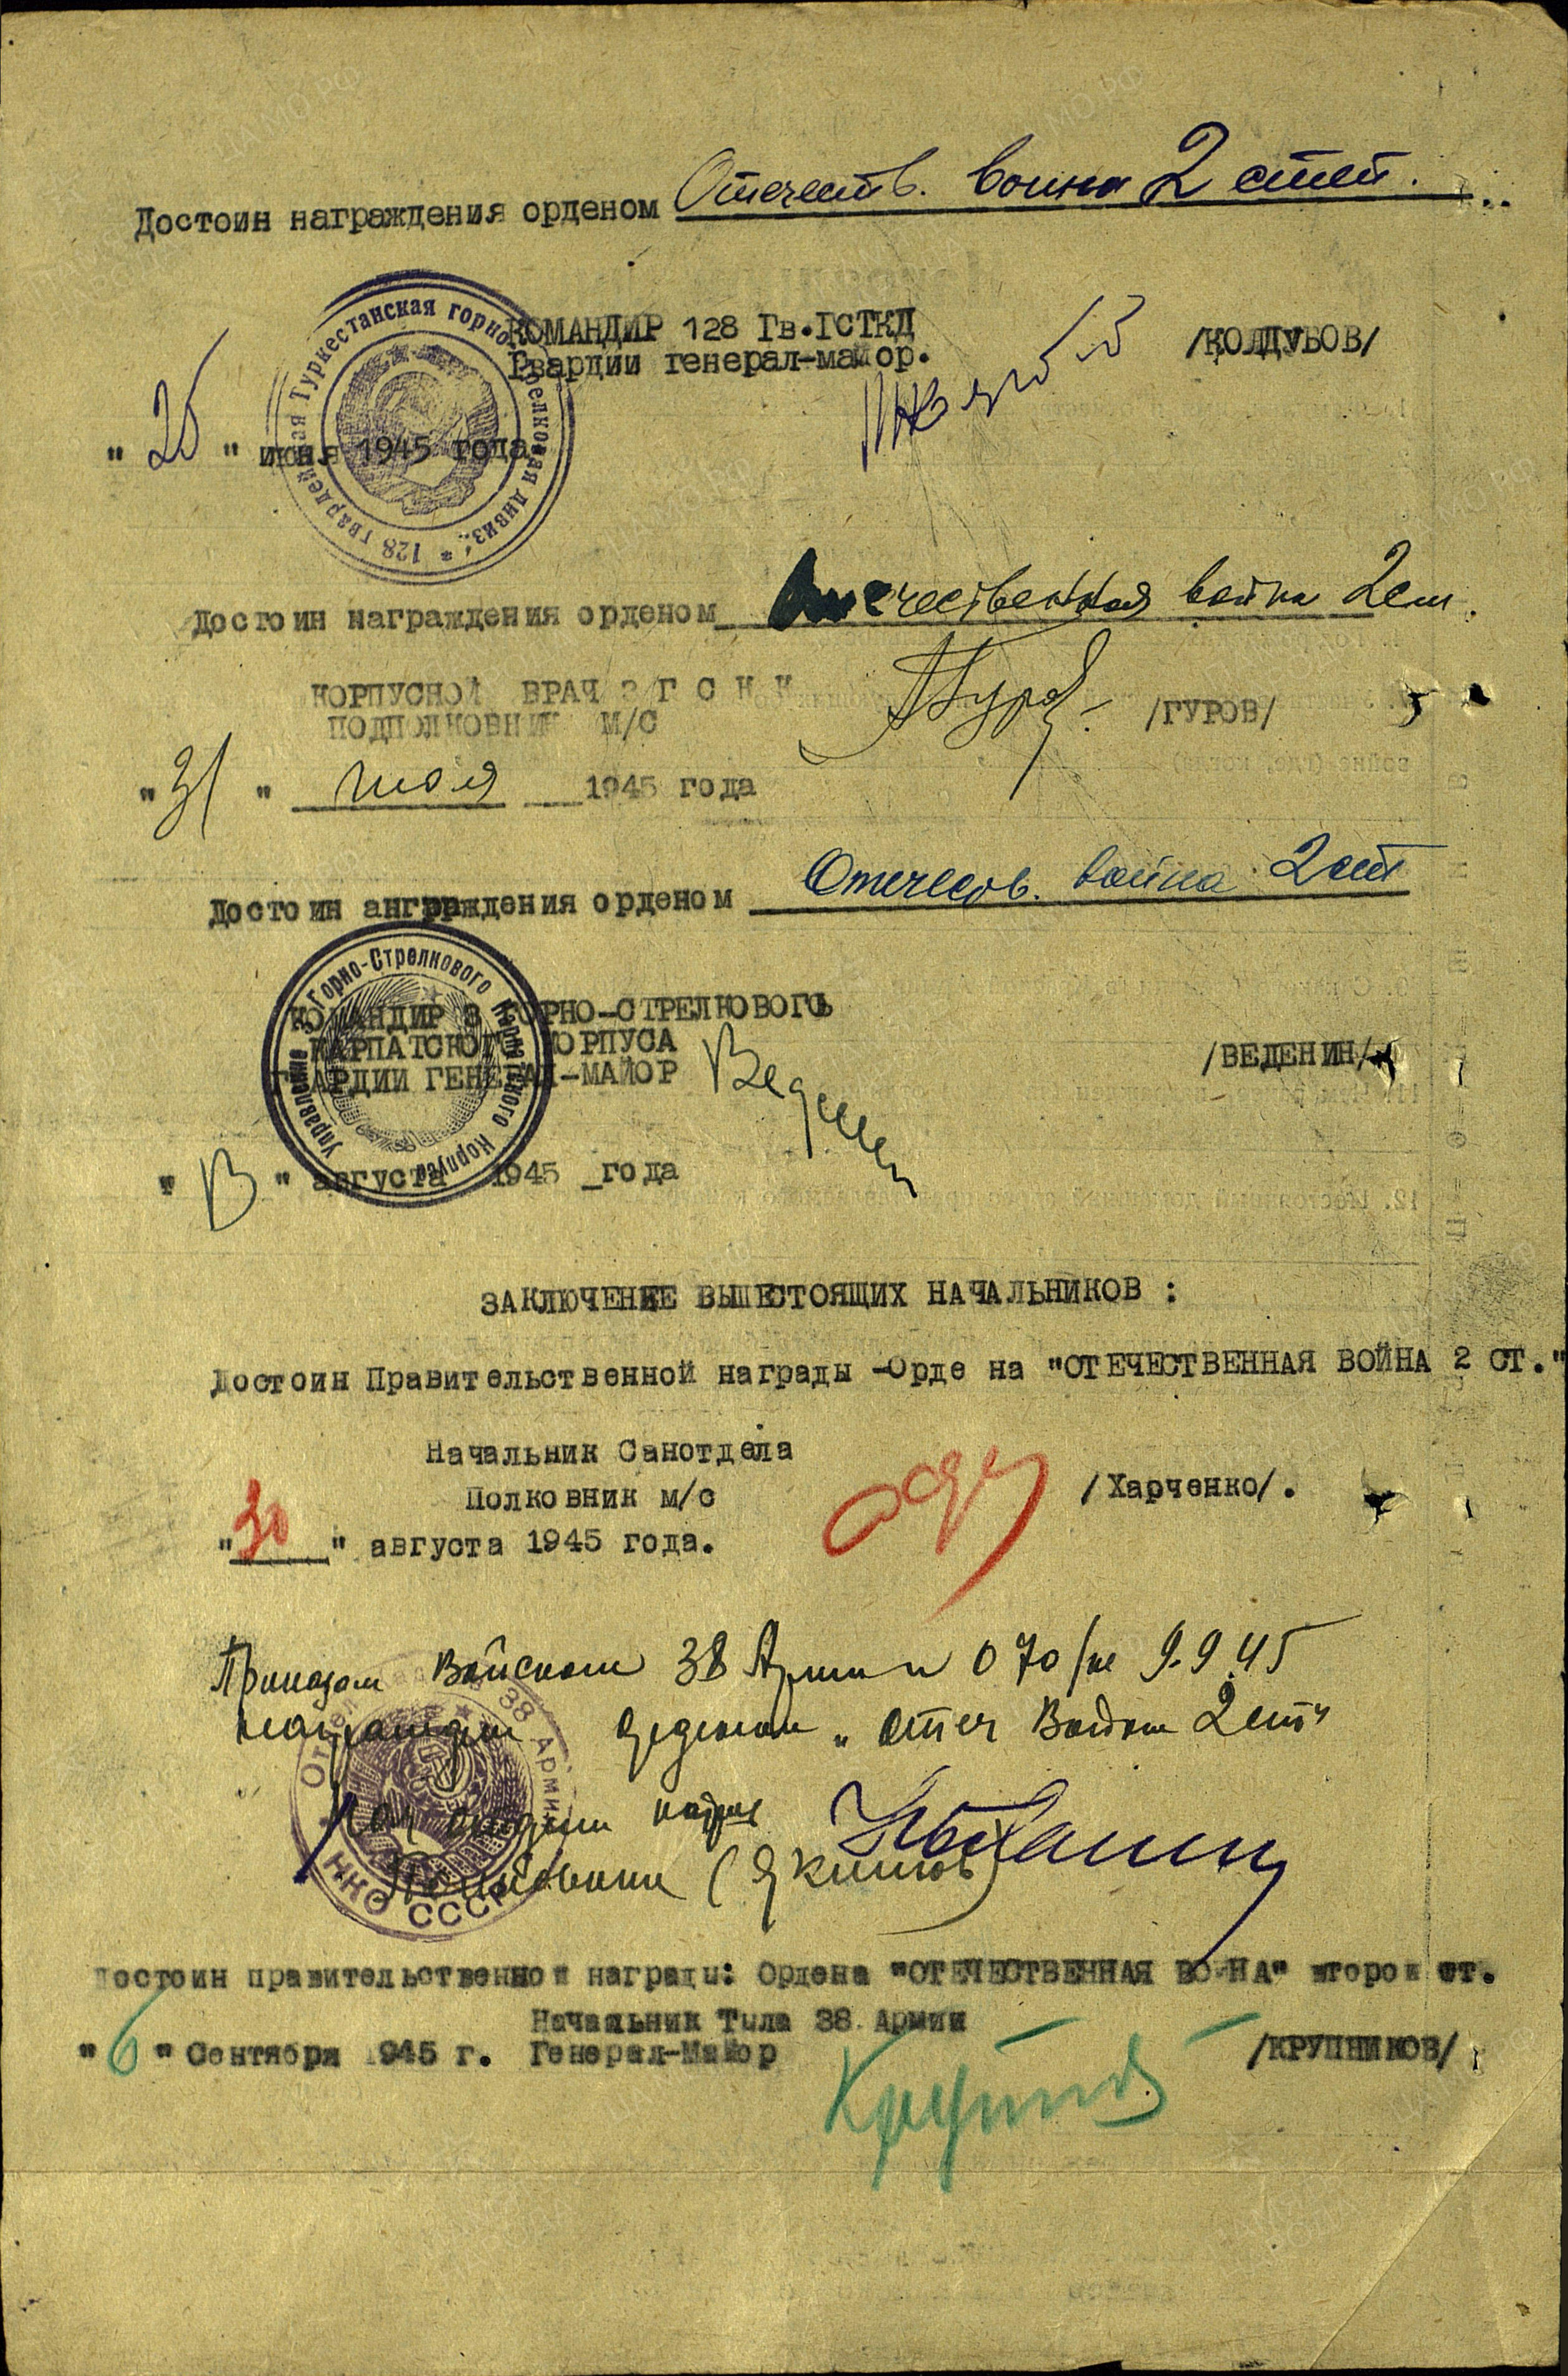 Достоин награждения орденом Отечеств. война 2 степ.
КОМАНДИР 128 Гв.ГСТКД
Гвардии генерал-майор. /КОЛДУБОВ/
"25" июня 1945 года.
128 гвардейская Туркестанская горно-стрелковая дивиз.
Достоин награждения орденом Отечественная война 2 ст.
КОРПУСНОЙ ВРАЧ 3 Г С К К
ПОДПОЛКОВНИК М/С Гуров /ГУРОВ/
"31" июля 1945 года
Достоин анграждения орденом Отечесв. война 2 ст
Управление 3 Горно-Стрелкового Карпатского Корпуса
КОМАНДИР 3 ГОРНО-СТРЕЛКОВОГО
КАРПАТСКОГО КОРПУСА
ГВАРДИИ ГЕНЕРАЛ-МАЙОР Веденин /ВЕДЕНИН/
"13" августа 1945 года
ЗАКЛЮЧЕНИЕ ВЫШЕСТОЯЩИХ НАЧАЛЬНИКОВ :
Достоин Правительственной награды -Ордена "ОТЕЧЕСТВЕННАЯ ВОЙНА 2 СТ."
Начальник Санотдела
Полковник м/с /Харченко/.
"30" августа 1945 года.
Приказом Войскам 38 Армии N 070/н 9.9.45
награжден орденом "Отеч Войны 2 ст"
38 Арми
НКО СССР
Достоин правительственной награды: Ордена "ОТЕЧЕСТВЕННАЯ ВОЙНА" второй ст.
Начальник Тыла 38 Армии
"6" Сентября 1945 г. Генерал-Майор /КРУПНИКОВ/